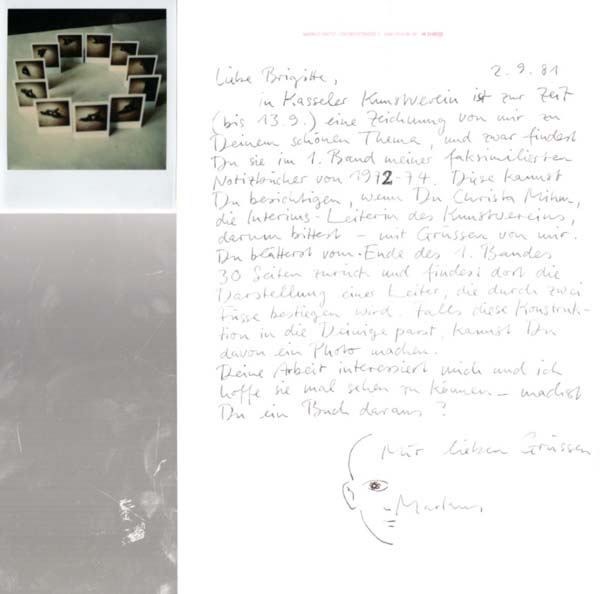 2.9.81
Liebe Brigitte,
in Kasseler Kunstverein ist zur Zeit
(bis 13.9.) eine Zeichnung von mir zu
Deinem schönen Thema, und zwar findest
Du sie im 1. Band meiner faksimilierten
Notizbücher von 1972-74. Diese kannst
Du besichtigen, wenn Du Christa Mihm,
die Interims-Leiterin des Kunstvereins,
darum bittest – mit Grüssen von mir.
Du blätterst vom Ende des 1. Bandes
30 Seiten zurück und findest dort die
Darstellung einer Leiter, die durch zwei
Füsse bestiegen wird. Falls diese Konstruk-
tion in die Deinige passt, kannst Du
davon ein Photo machen.
Deine Arbeit interessiert mich und ich
hoffe sie mal sehen zu können – machst
Du ein Buch daraus?
Mit lieben Grüssen
Markus